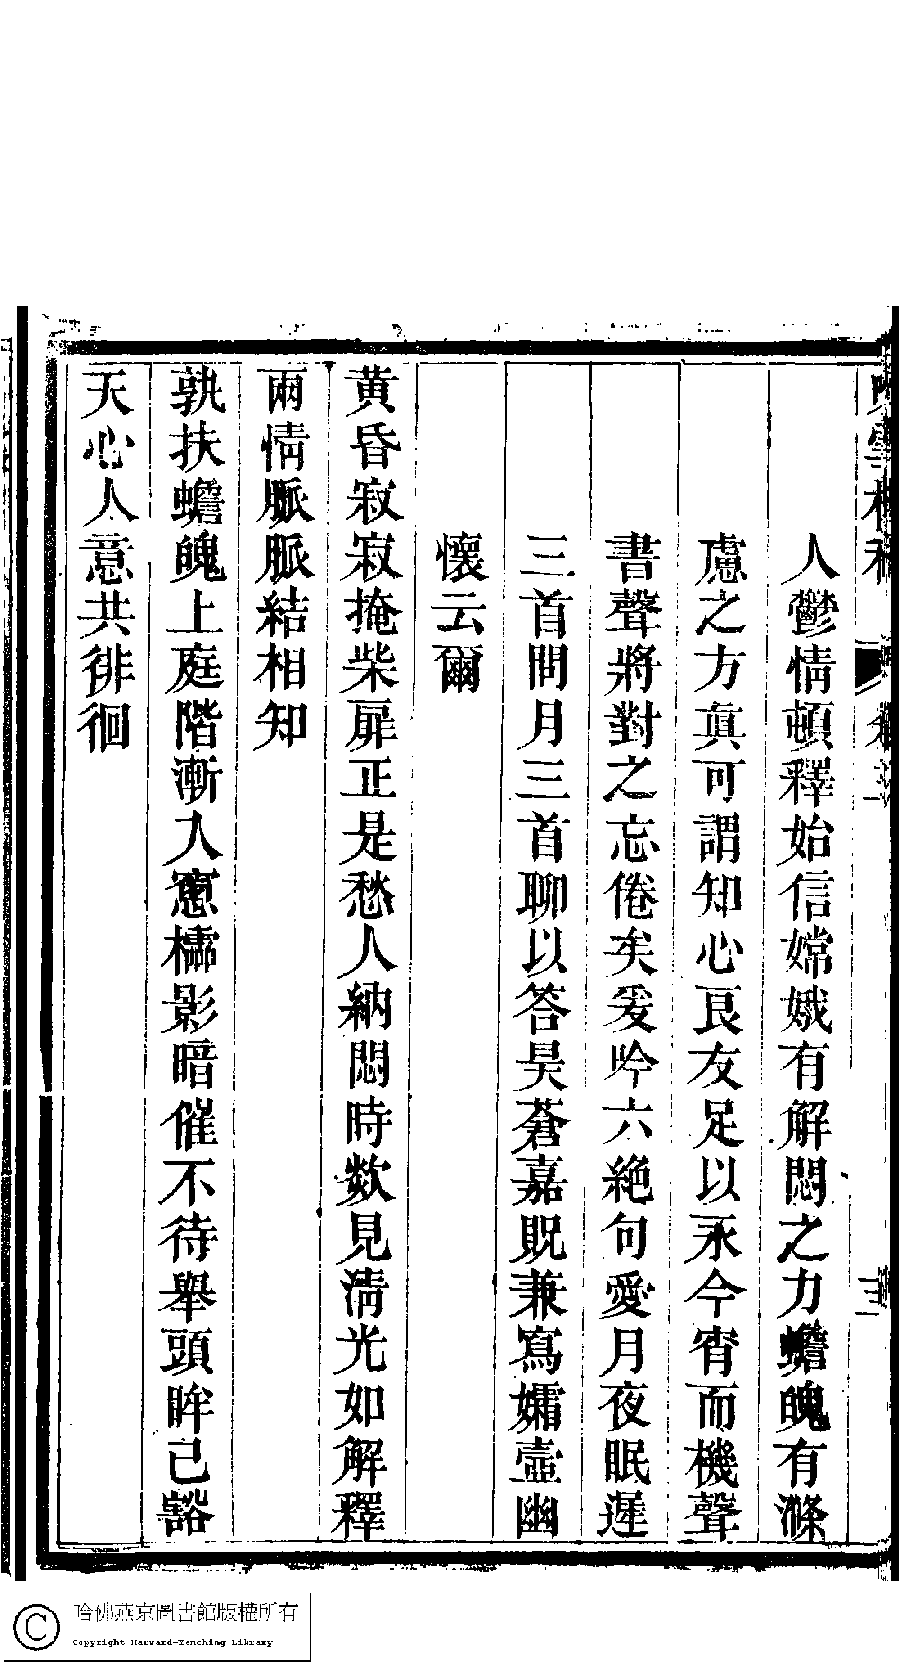 人鬱情頓釋始信嫦娥有解悶之力蟾魄有滌
慮之方眞可謂知心良友足以永今宵而機聲
書聲將對之忘倦矣爰吟六絶句愛月夜眠遲
三首問月三首聊以答昊蒼嘉貺兼寫孀壼幽
懷云爾
黄昏寂寂掩柴扉正是愁人納悶時欻見淸光如解釋
兩情脈脈結相知
孰扶蟾魄上庭階漸入窻櫺影暗催不待舉頭眸已豁
天心人意共徘徊
哈佛燕京圖書館版權所有
Copyright Harvard-Yenching Library